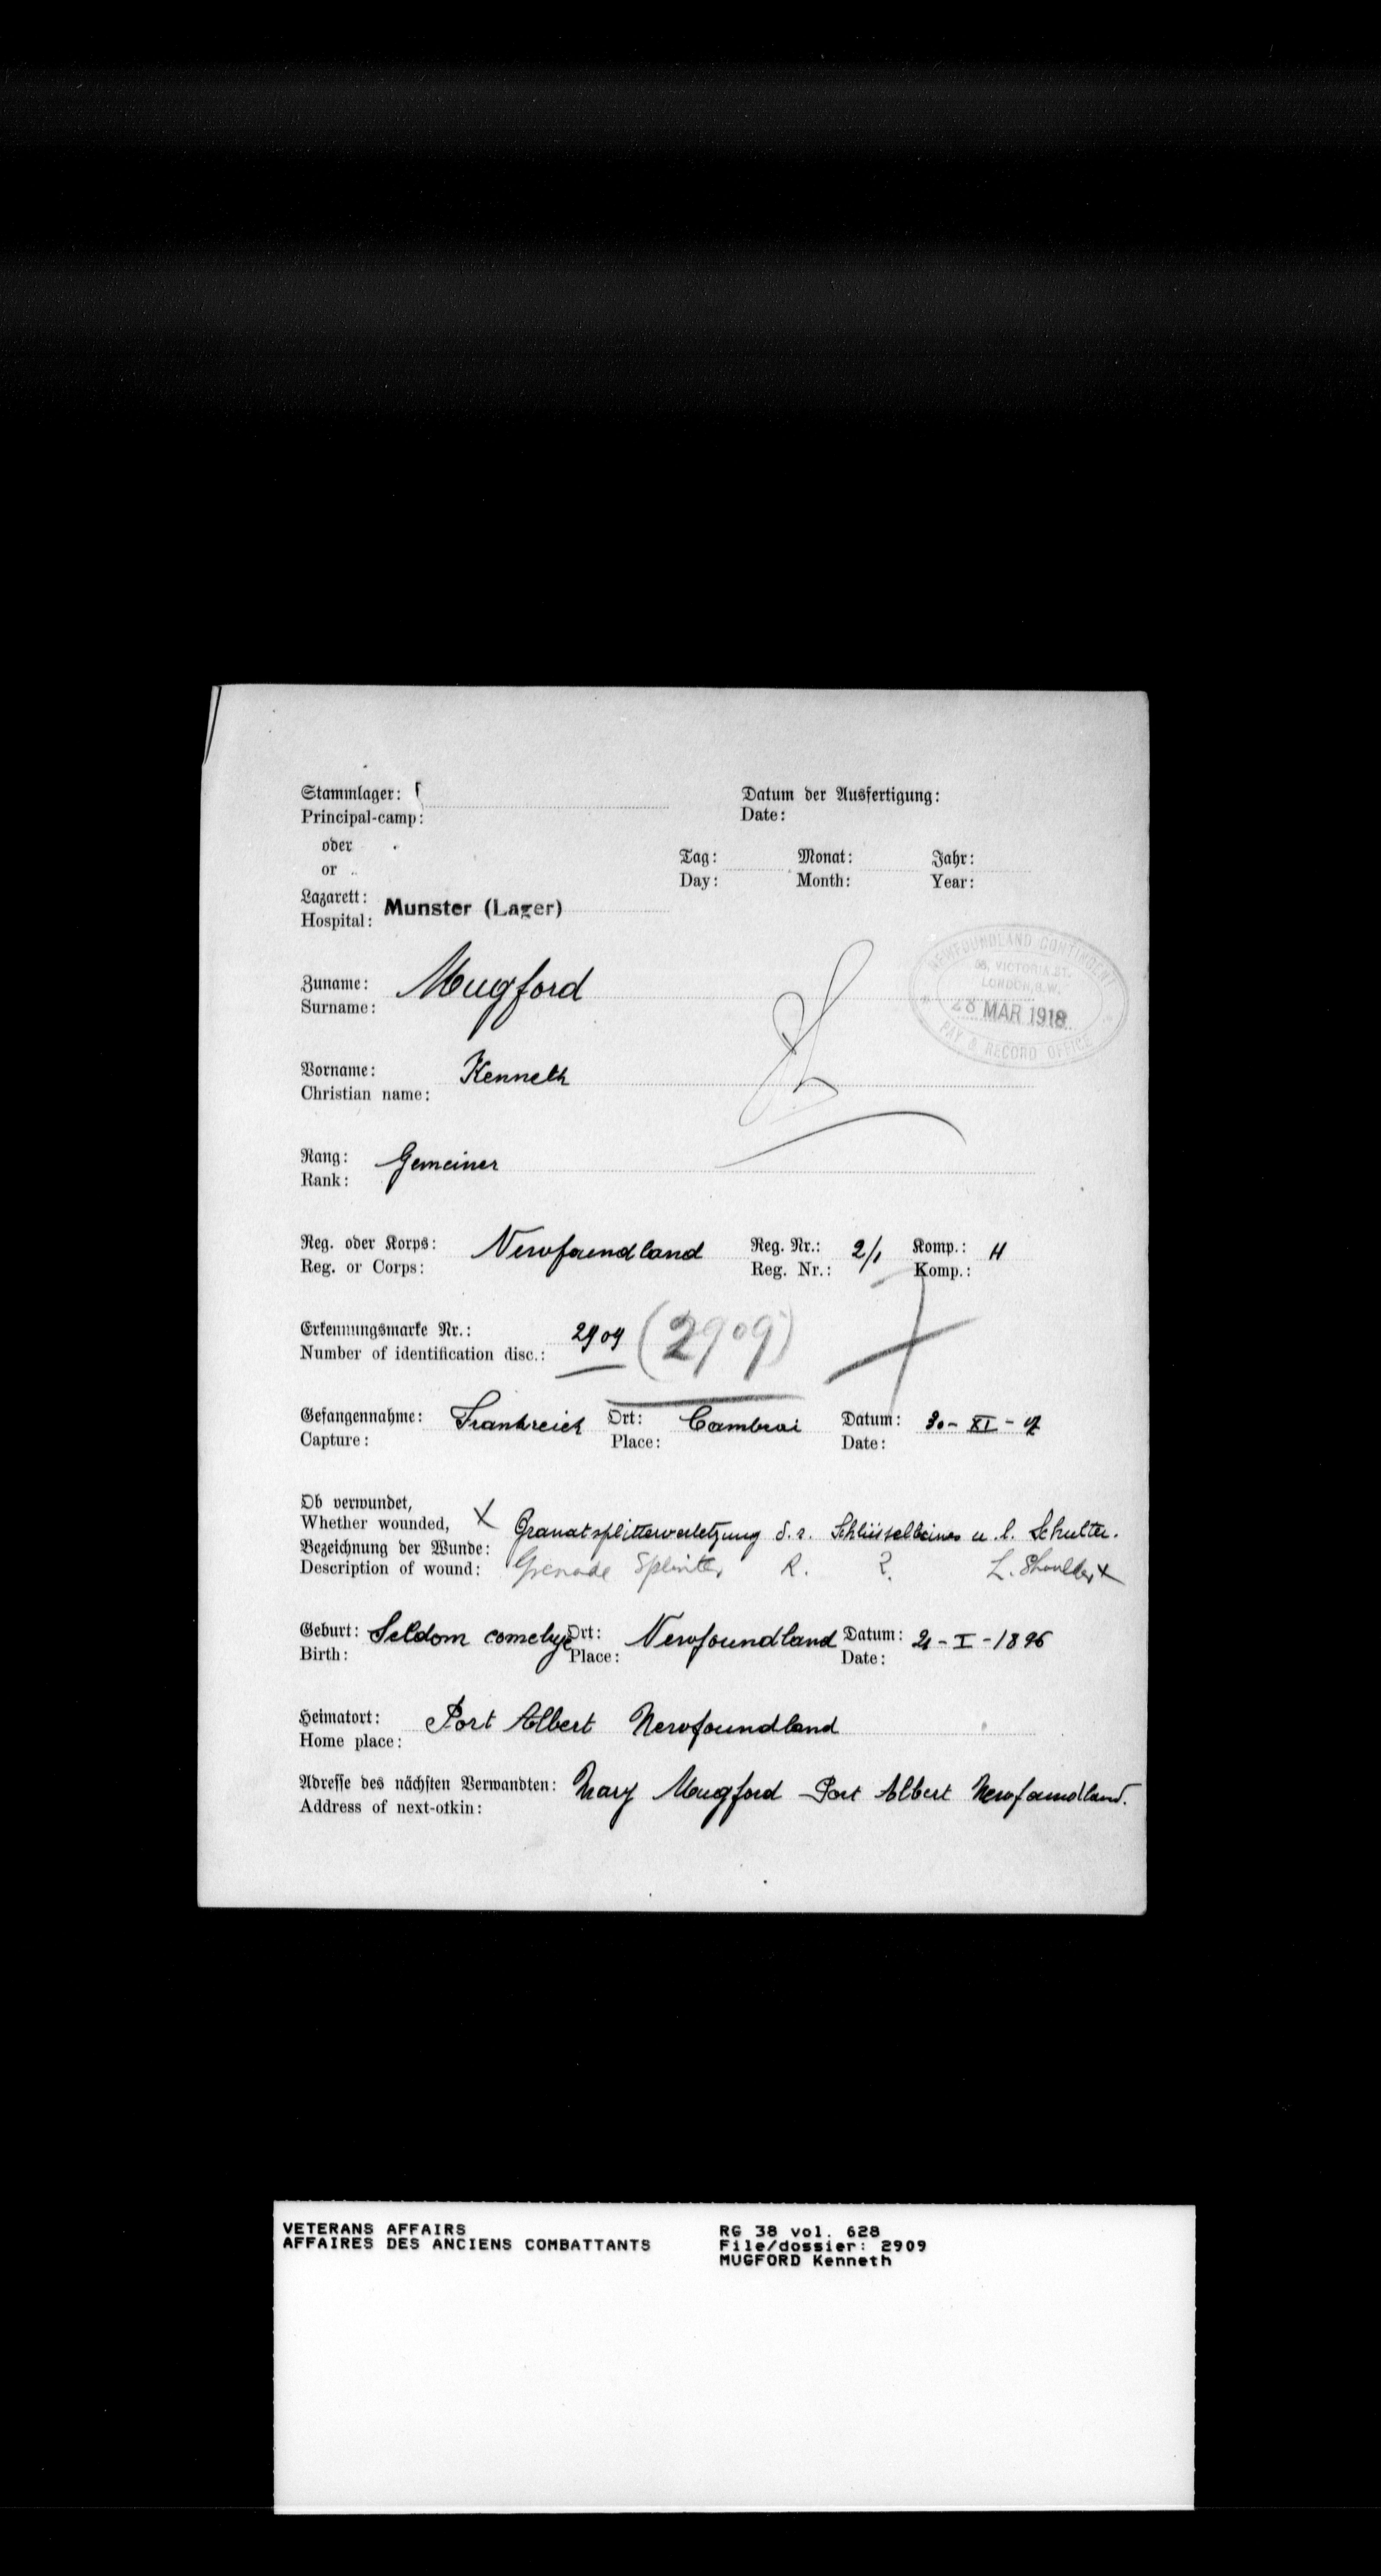 Stammlager:
Principal-camp:
Datum der Ausfertigung:
Date:
oder
or
Tag:
Day:
Monat:
Month:
Jahr:
Year:
Lazarett:
Hospital: Munster (Lager)
NEWFOUNDLAND CONTINGENT
58, VICTORIA ST.
LONDON, S.W.
28 MAR 1918
PAY & RECORD OFFICE
Zuname: Mugford
Surname:
Vorname: Kenneth
Christian name:
Rang: Gemeiner
Rank:
Reg. oder Korps: Newfoundland Reg. Nr.: 2/1 Komp.: H
Reg. or Corps: Reg. Nr.: Komp.:
Erkennungsmarke Nr.: 2909 (2909)
Number of identification disc.:
Gefangennahme: Frankreich Ort: Cambrai Datum: 30-XI-17
Capture: Place: Date:
Ob verwundet,
Whether wounded, X Granatsplitterverletzung d. r. Schlüsselbeines u. l. Schulter.
Bezeichnung der Wunde:
Description of wound: Grenade Splinter R. ? L. Shoulder X
Geburt: Seldom comebye Ort: Newfoundland Datum: 21-I-1896
Birth: Place: Date:
Heimatort: Port Albert Newfoundland
Home place:
Adresse des nächsten Verwandten: Mary Mugford Port Albert Newfoundland.
Address of next-otkin:
VETERANS AFFAIRS RG 38 vol. 628
AFFAIRES DES ANCIENS COMBATTANTS File/dossier: 2909
MUGFORD Kenneth